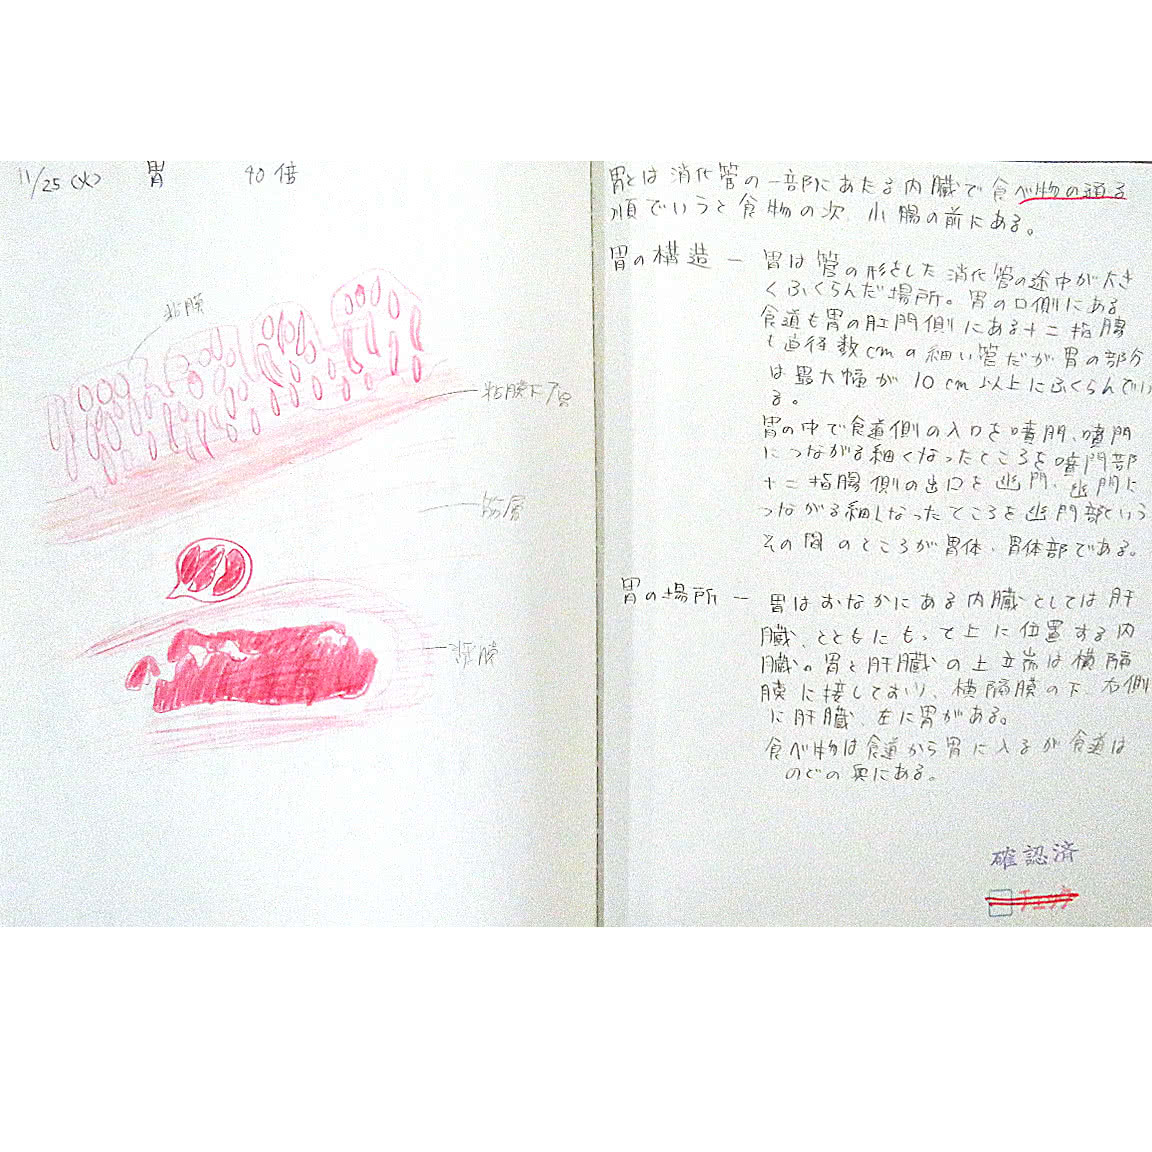 11/25(火) 胃 40倍
粘膜
粘膜下層
筋層
漿膜
胃とは消化管の一部にあたる内臓で食べ物の通る
順でいうと食物の次、小腸の前にある。
胃の構造 ー 胃は管の形をした消化管の途中が大き
くふくらんだ場所。胃の口側にある
食道も胃の肛門側にある十二指腸
も直径数cmの細い管だが胃の部分
は最大幅が10cm以上にふくらんでい
る。
胃の中で食道側の入口を噴門、噴門
につながる細くなったところを噴門部
十二指腸側の出口を幽門、幽門に
つながる細くなったところを幽門部という
その間のところが胃体、胃体部である。
胃の場所 ー 胃はおなかにある内臓としては肝
臓、とともにもって上に位置する内
臓。胃と肝臓の上立端は横隔
膜に接しており、横隔膜の下、右側
に肝臓、左に胃がある。
食べ物は食道から胃に入るが食道は
のどの奥にある。
確認済
チェック